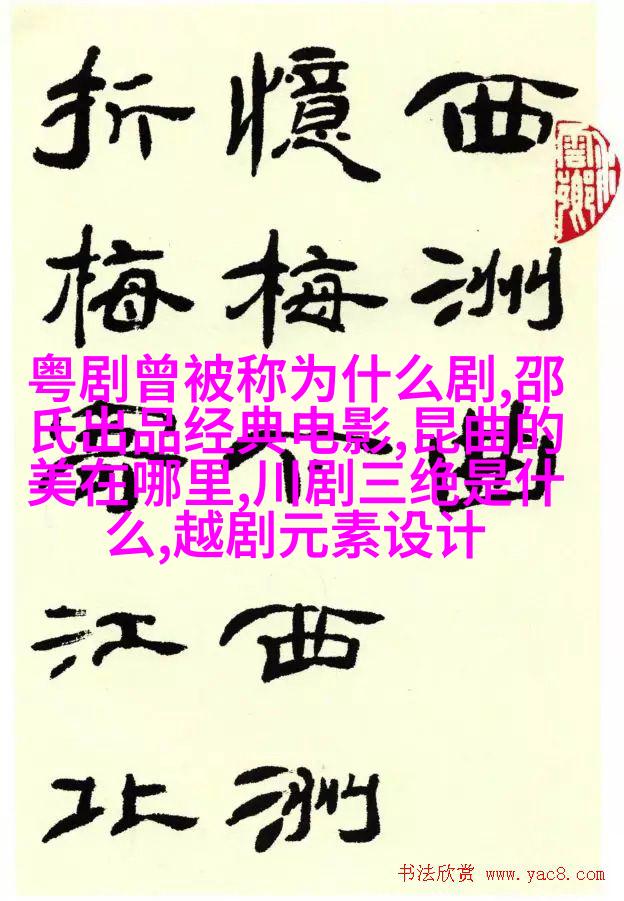 西洲曲
憶梅下西洲
折梅寄江北
粤剧曾被称为什么剧,邵
氏出品经典电影,昆曲的
美在哪里,川剧三绝是什
么,越剧元素设计
书法欣赏 www.yac8.com